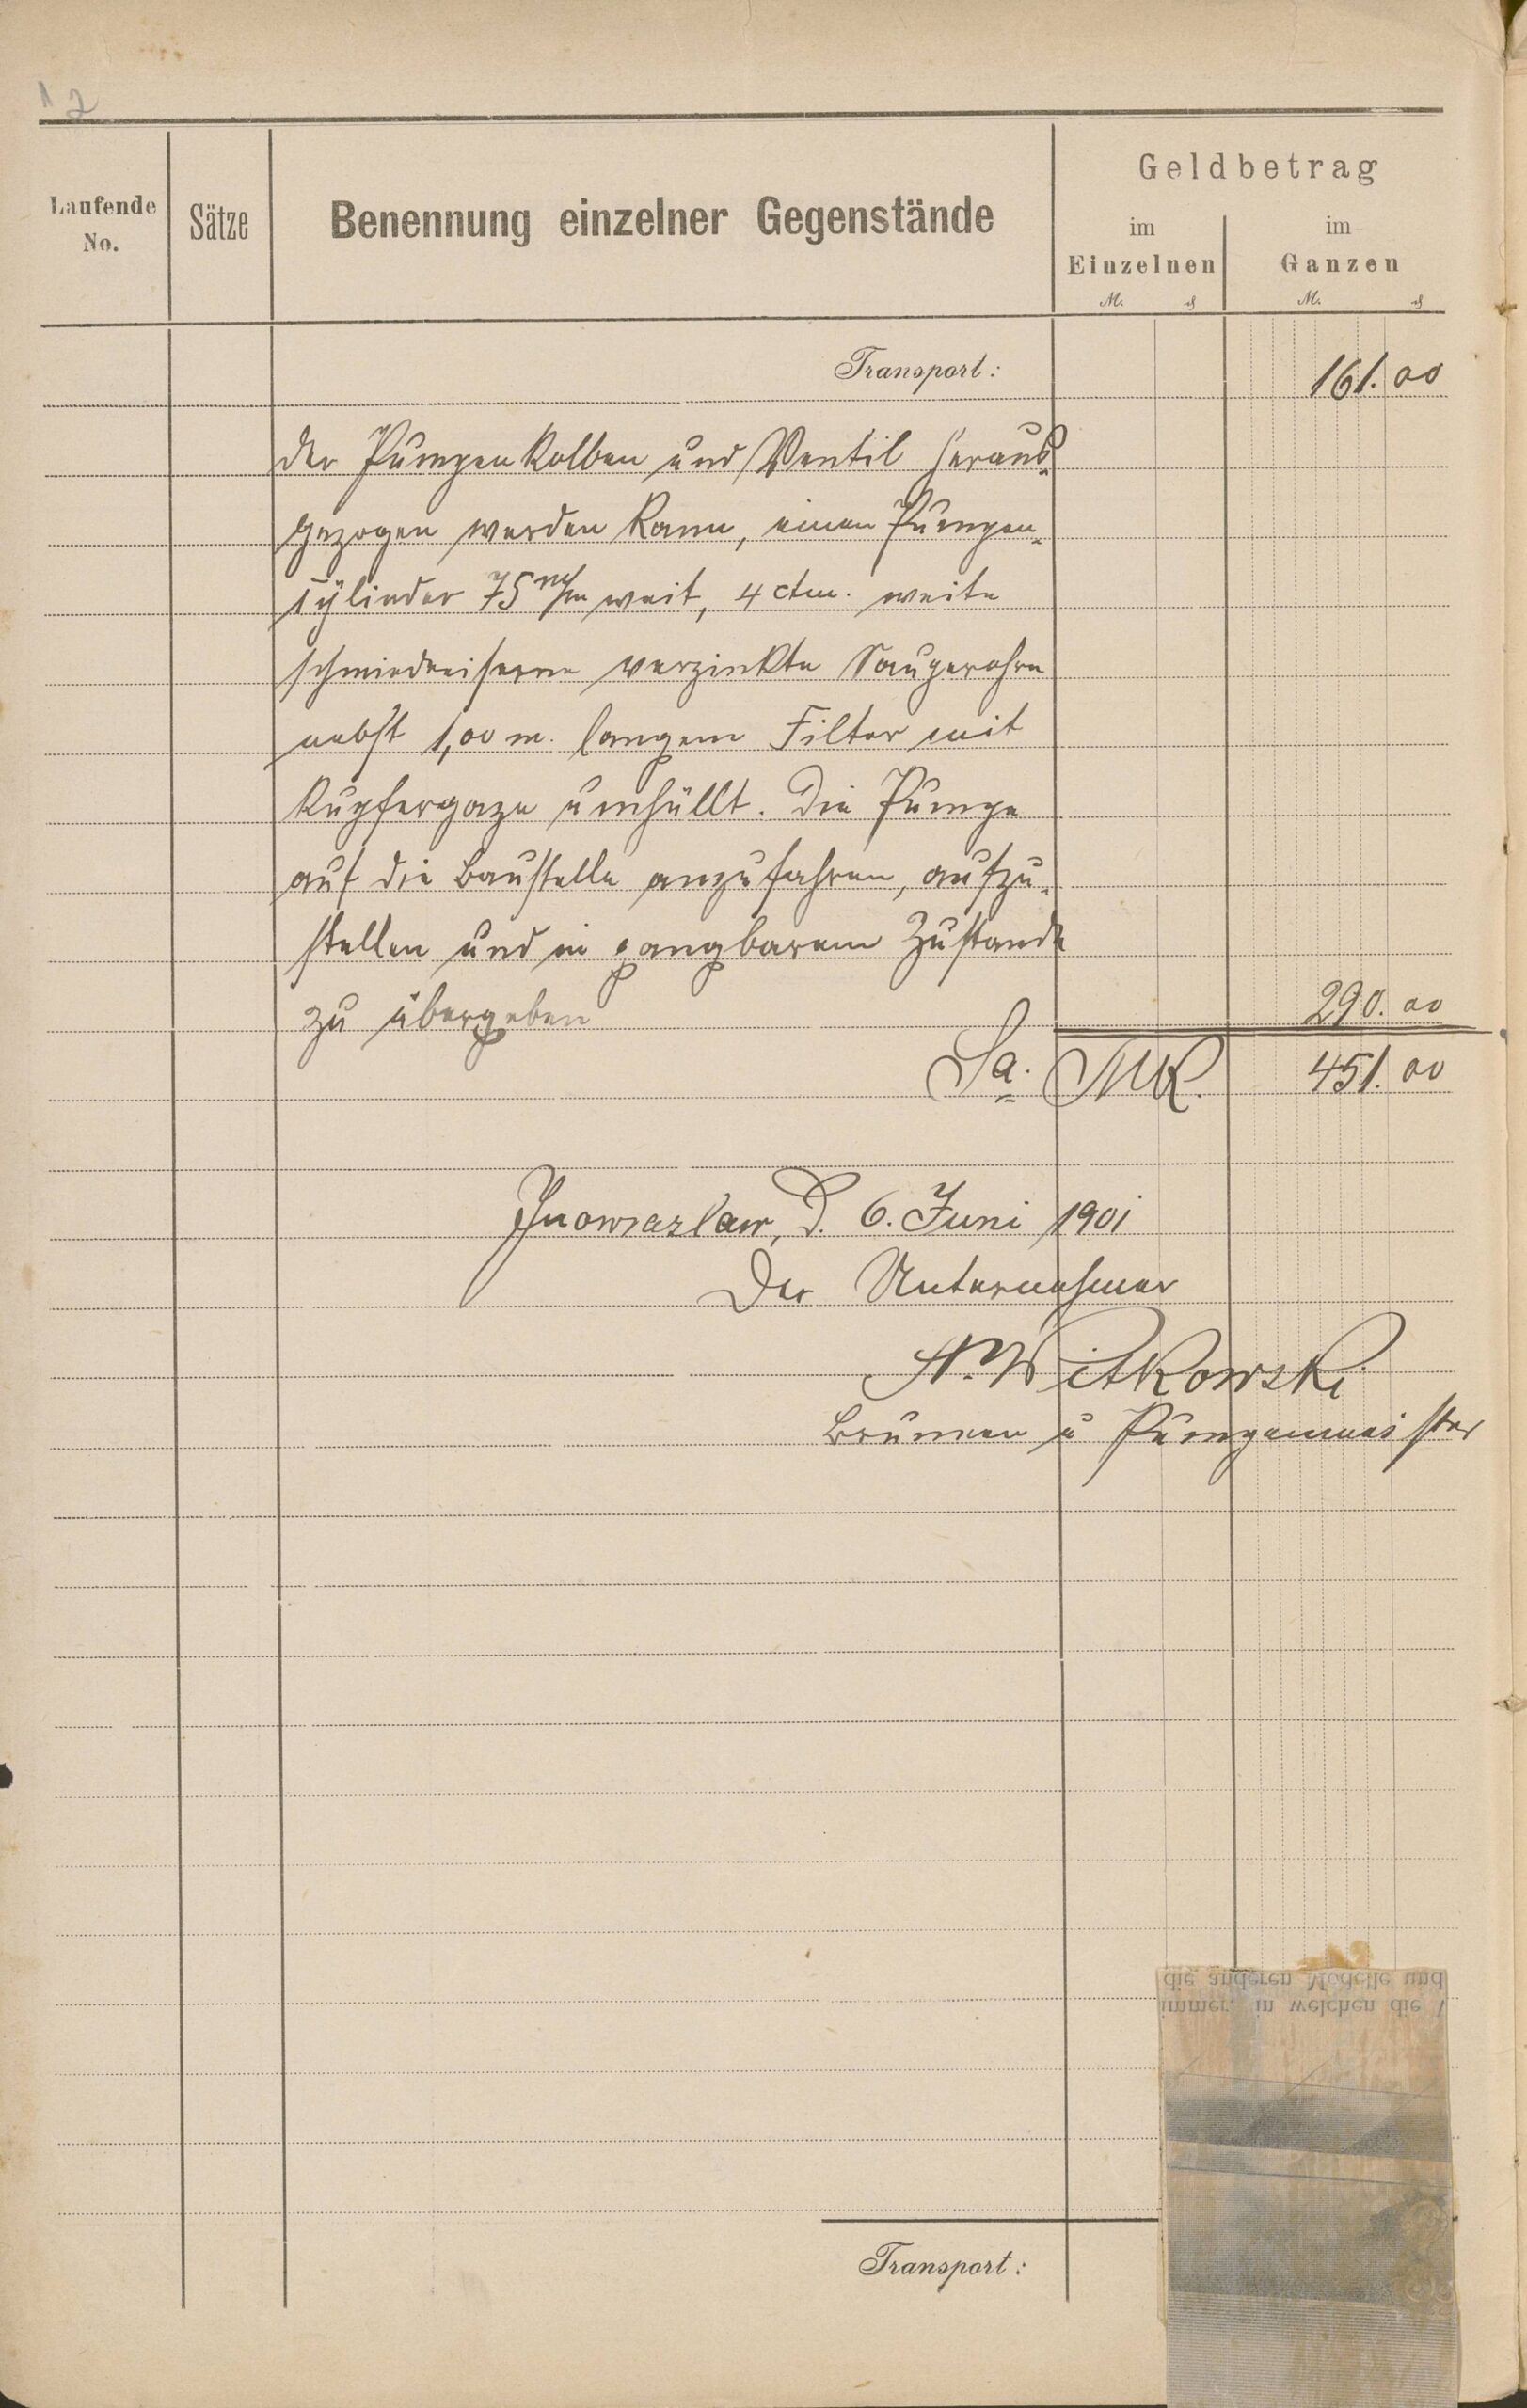 12
Laufende No.
Sätze
Benennung einzelner Gegenstände
Geldbetrag
im Einzelnen
im Ganzen
M. ₰ M. ₰
Transport: 161.00
der Pumpenkolben und Ventil heraus-
gezogen werden kann, einen Pumpen-
cÿlinder 75 m/m weit, 4 ctm. weite
schmiedeiserne verzinkte Saugerohre
nebst 1,00 m. langem Filter mit
Kupfergaze umhüllt. Die Pumpe
auf die Baustelle anzufahren, aufzu-
stellen und in gangbarem Zustande
zu übergeben 290.00
Sa. MK. 451.00
Inowrazlaw, d. 6. Juni 1901
Der Unternehmer
A. Witkowski
Brunnen u Pumpenmeister
die anderen Modelle und
immer, in welchen die
Transport: